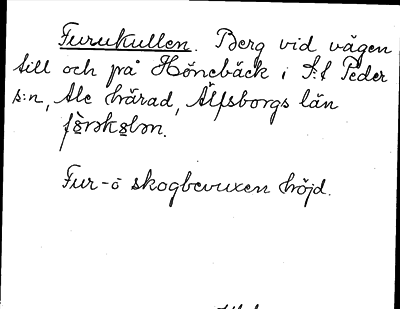 Furukullen. Berg vid vägen
till och på Hönebäck i S:t Peder
s:n, Ale härad, Älfsborgs län
Fur- o skogbevuxen höjd.